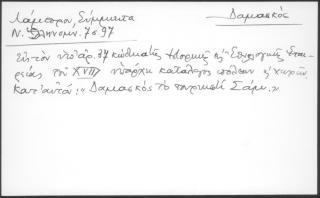 Λάμπρου, Σύμμικτα
Δαμασκός
Ν. Ἑλληνομν. 7 σ. 97
Εἰς τὸν ὑπ' ἀρ. 37 κώδικα τῆς Ἱστορικῆς & Ἐθνολογικῆς Ἑται-
ρείας τοῦ XVIII ὑπάρχει κατάλογος πόλεων & χωρῶν
Κατ' αὐτόν: «Δαμασκὸς τὸ τουρκικὸ Σάμι.»